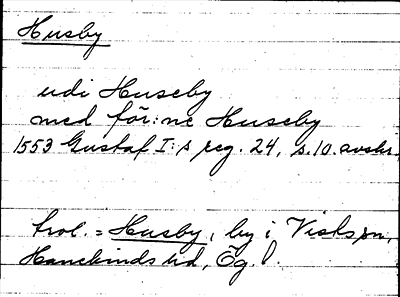 Husby
udi Huseby
med för:ne Huseby
1553 Gustaf I:s reg. 24, s. 10. avskr.
trol. = Husby, by i Viskʃn,
Hanekinds hd, Ög. l.